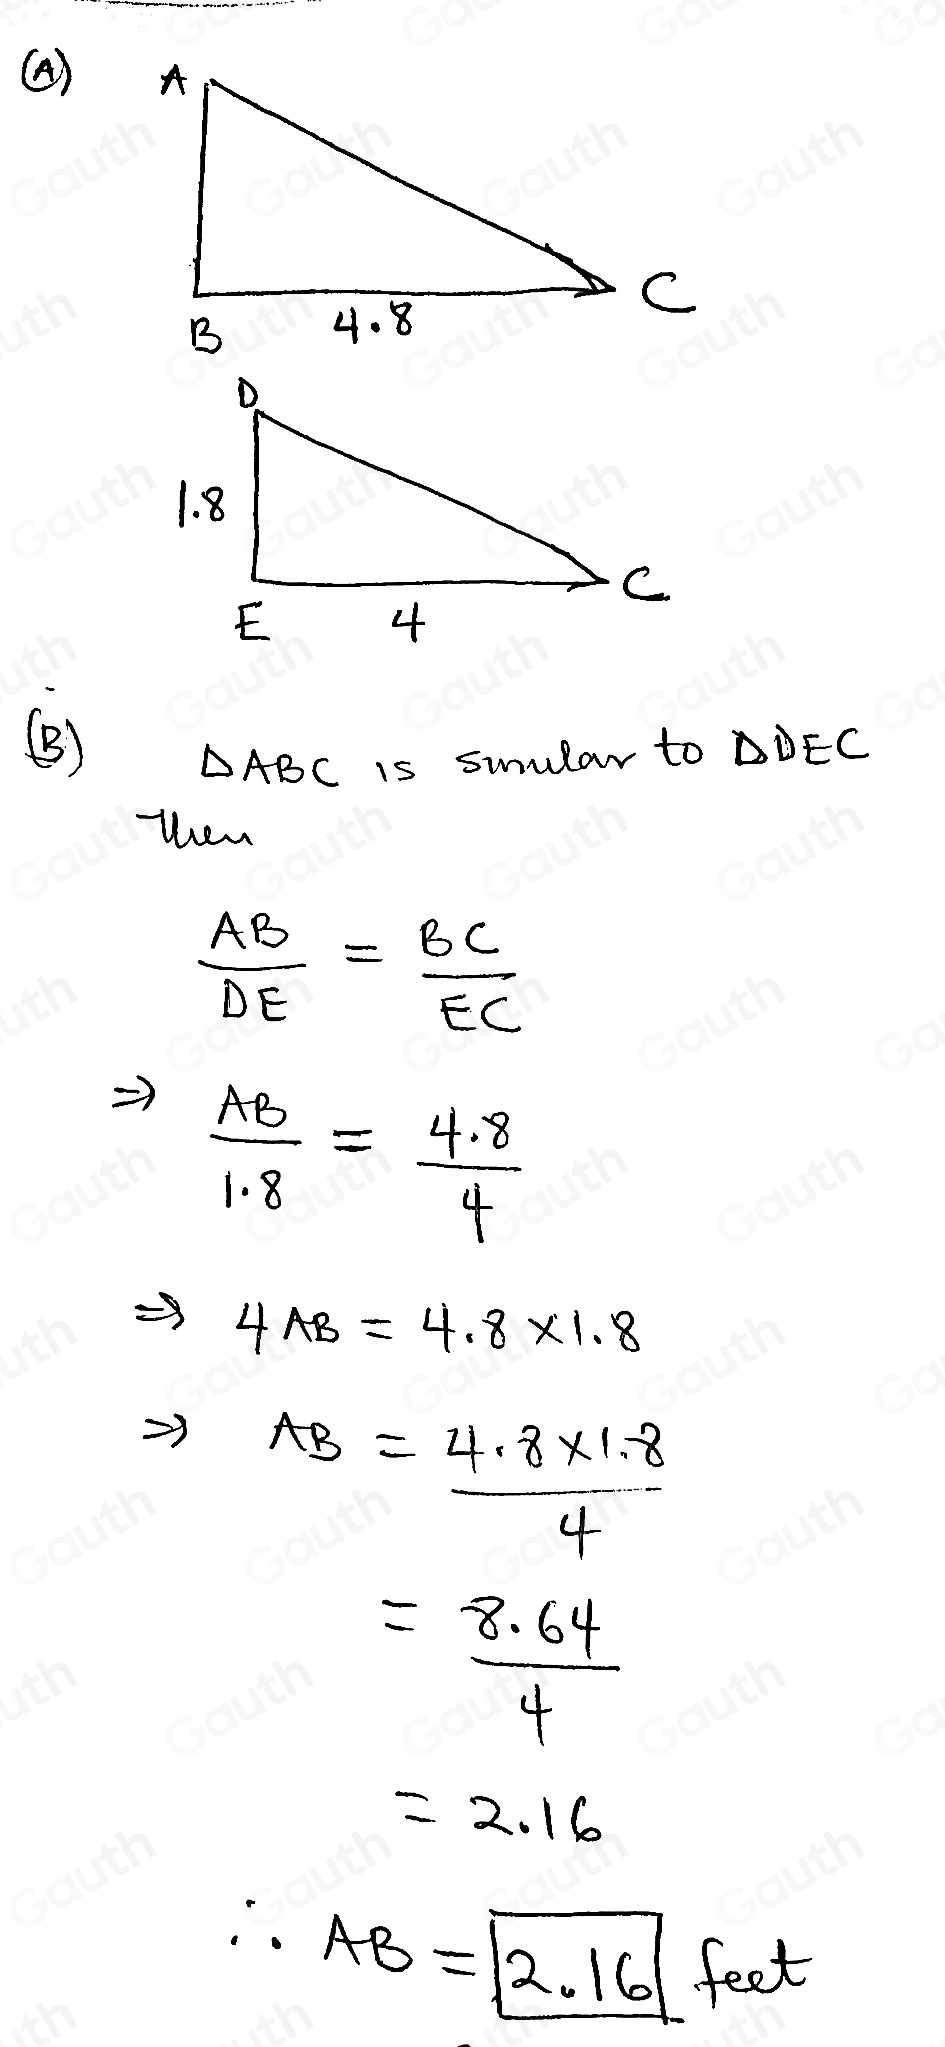 (A)
A
B
4.8
C
D
1.8
E
4
C
(B)
△ABC is similar to △DEC
Then
AB/DE = BC/EC
⇒ AB/1.8 = 4.8/4
⇒ 4AB = 4.8×1.8
⇒ AB = 4.8×1.8/4
= 8.64/4
= 2.16
∴ AB = 2.16 feet
Gauth